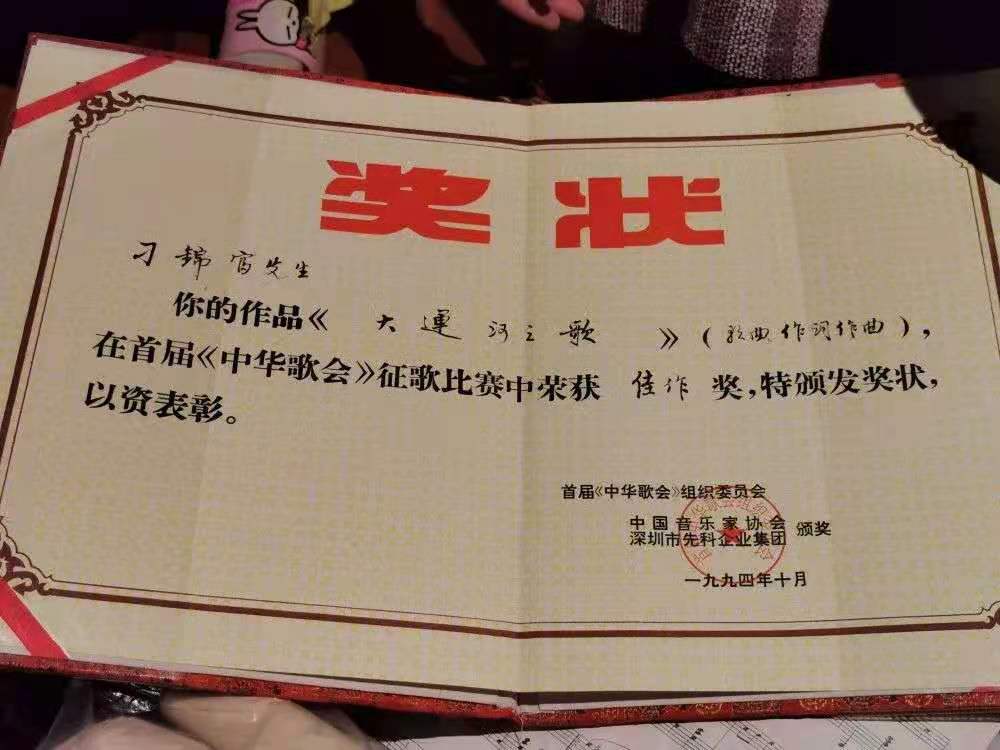 奖状
刁锦富先生
你的作品《大運河之歌》(歌曲作词作曲),
在首届《中华歌会》征歌比赛中荣获佳作奖,特颁发奖状,
以资表彰。
首届《中华歌会》组织委员会
中国音乐家协会
深圳市先科企业集团
颁奖
一九九四年十月